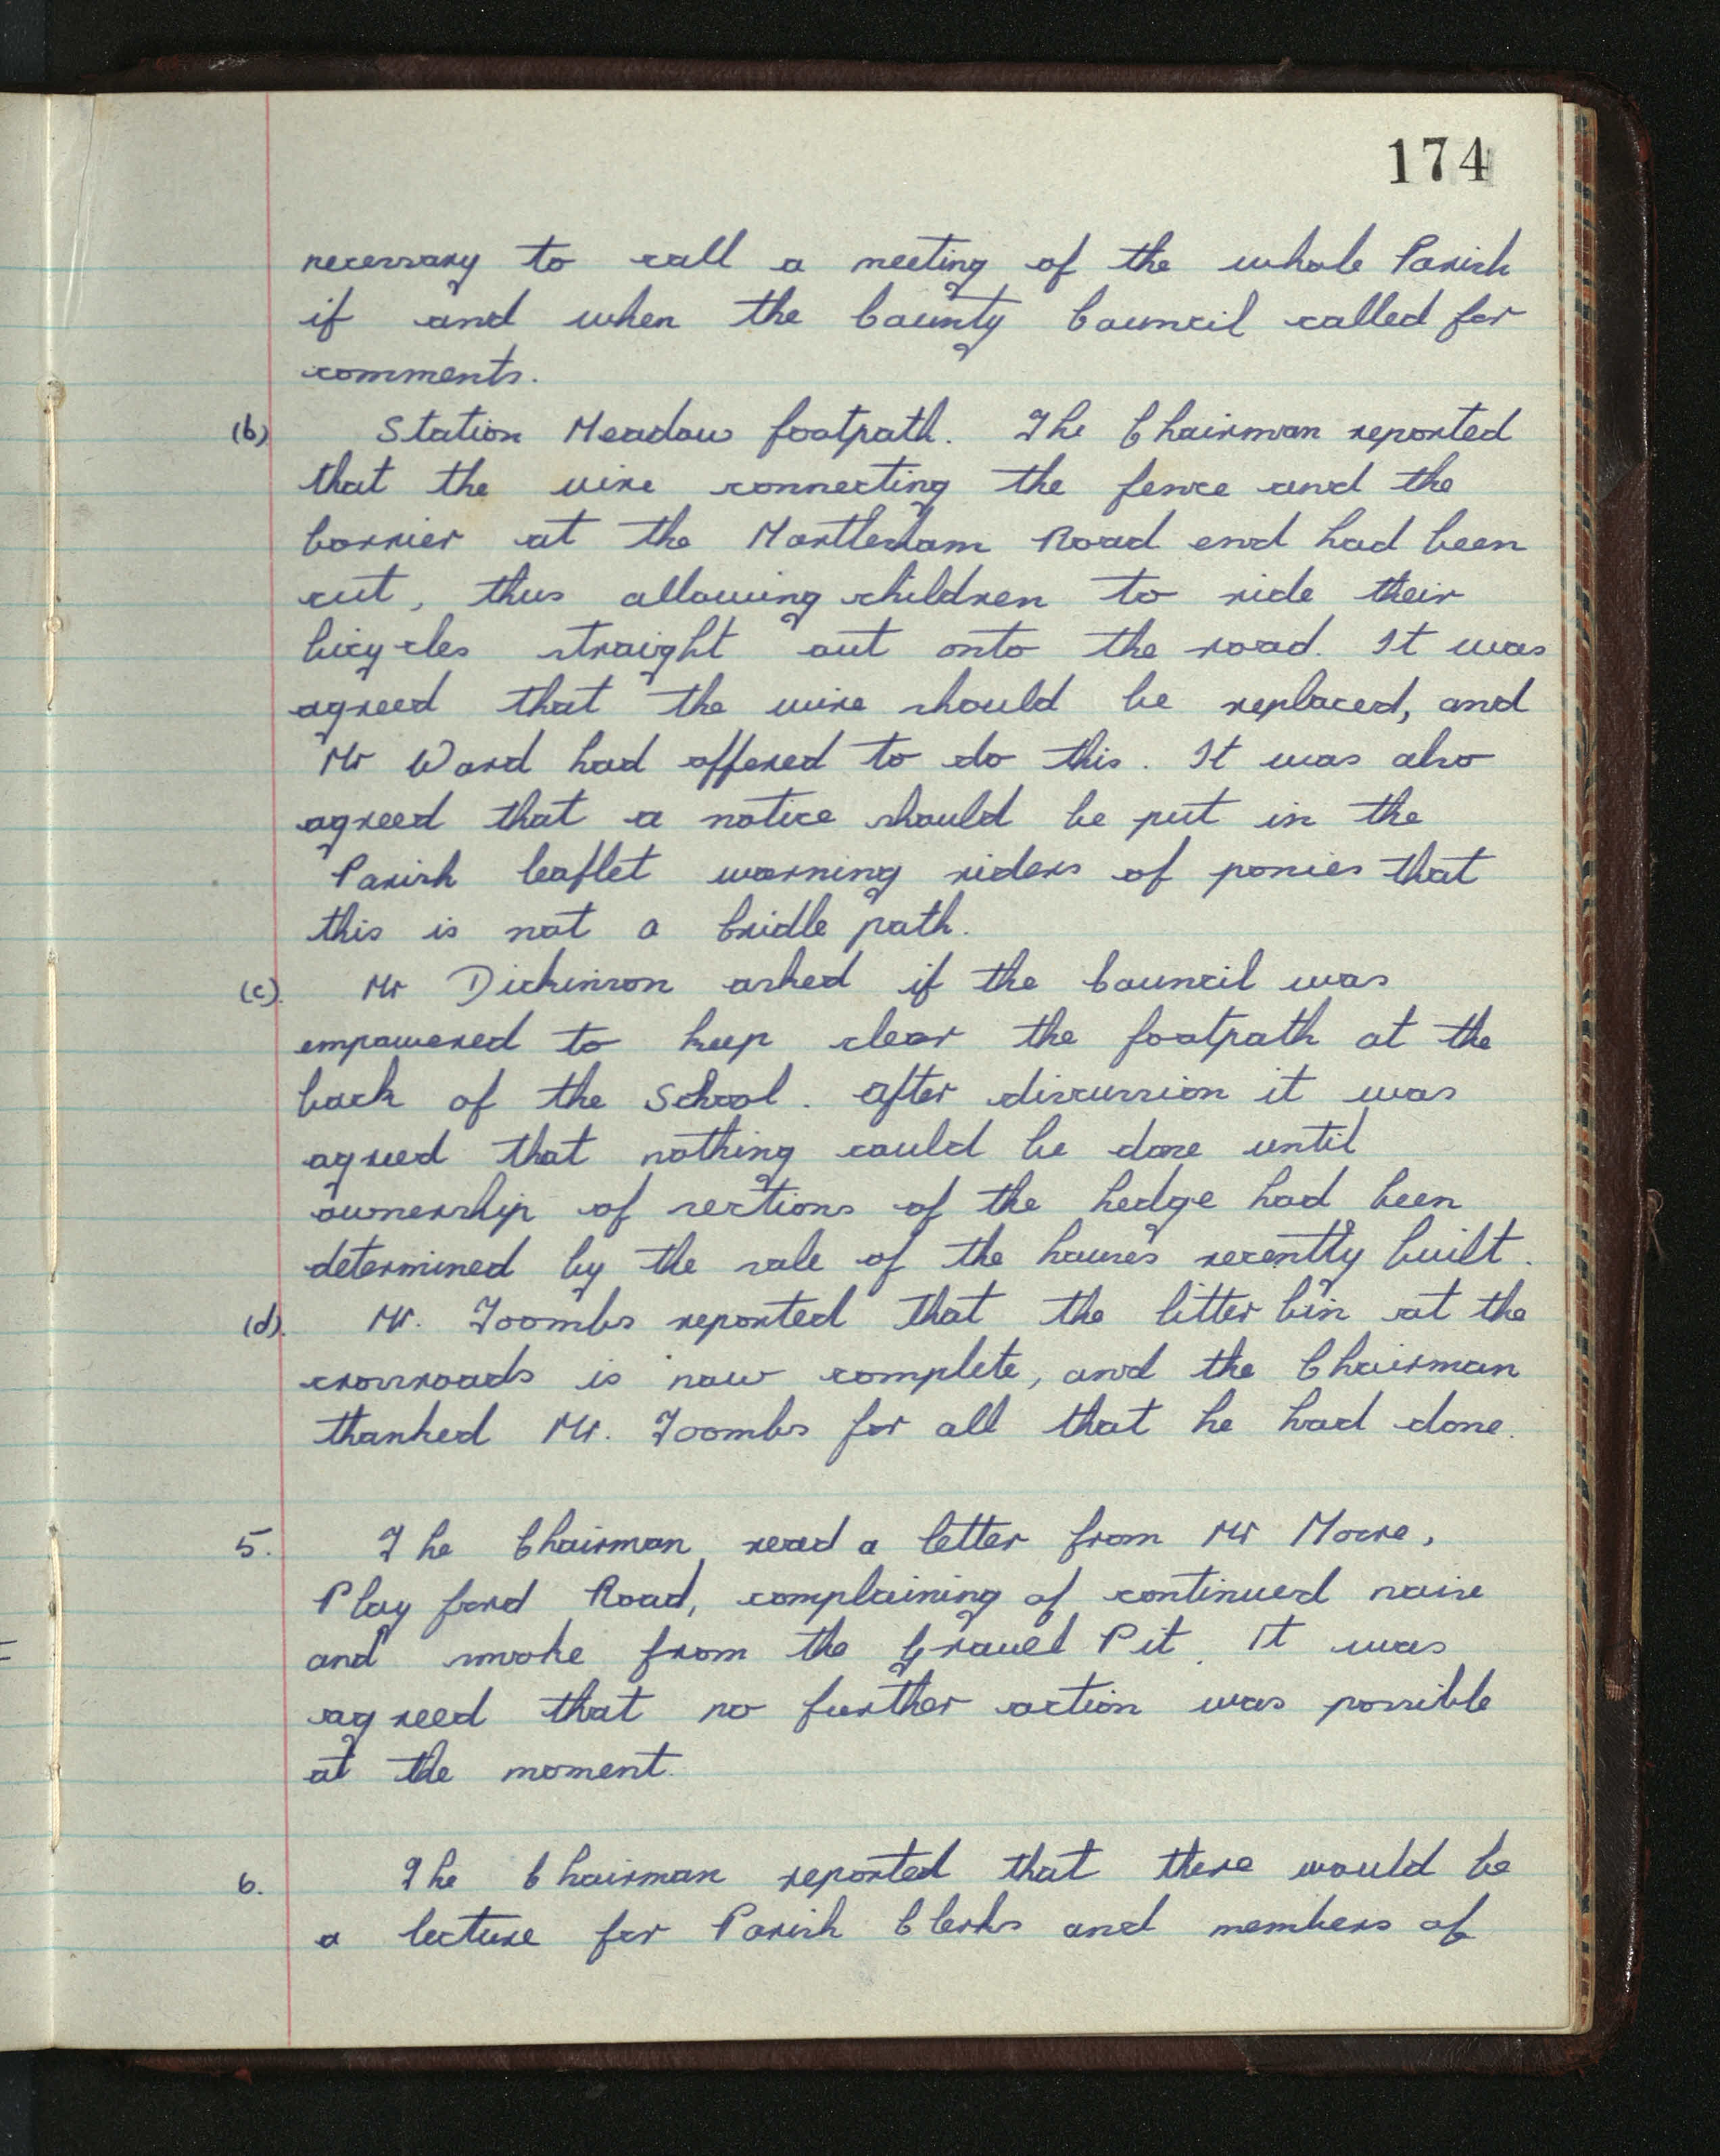 174
necessary to call a meeting of the whole Parish
if and when the County Council called for
comments.
(b) Station Meadow footpath. The Chairman reported
that the wire connecting the fence and the
barrier at the Martlesham Road end had been
cut, thus allowing children to ride their
bicycles straight out onto the road. It was
agreed that the wire should be replaced, and
Mr Ward had offered to do this. It was also
agreed that a notice should be put in the
Parish leaflet warning riders of ponies that
this is not a bridle path.
(c). Mr Dickinson asked if the Council was
empowered to keep clear the footpath at the
back of the School. After discussion it was
agreed that nothing could be done until
ownership of sections of the hedge had been
determined by the sale of the houses recently built.
(d). Mr. Toombs reported that the litter bin at the
crossroads is now complete, and the Chairman
thanked Mr. Toombs for all that he had done.
5. The Chairman read a letter from Mr Moore,
Playford Road, complaining of continued noise
and smoke from the Gravel Pit. It was
agreed that no further action was possible
at the moment.
6. The Chairman reported that there would be
a lecture for Parish Clerks and members of